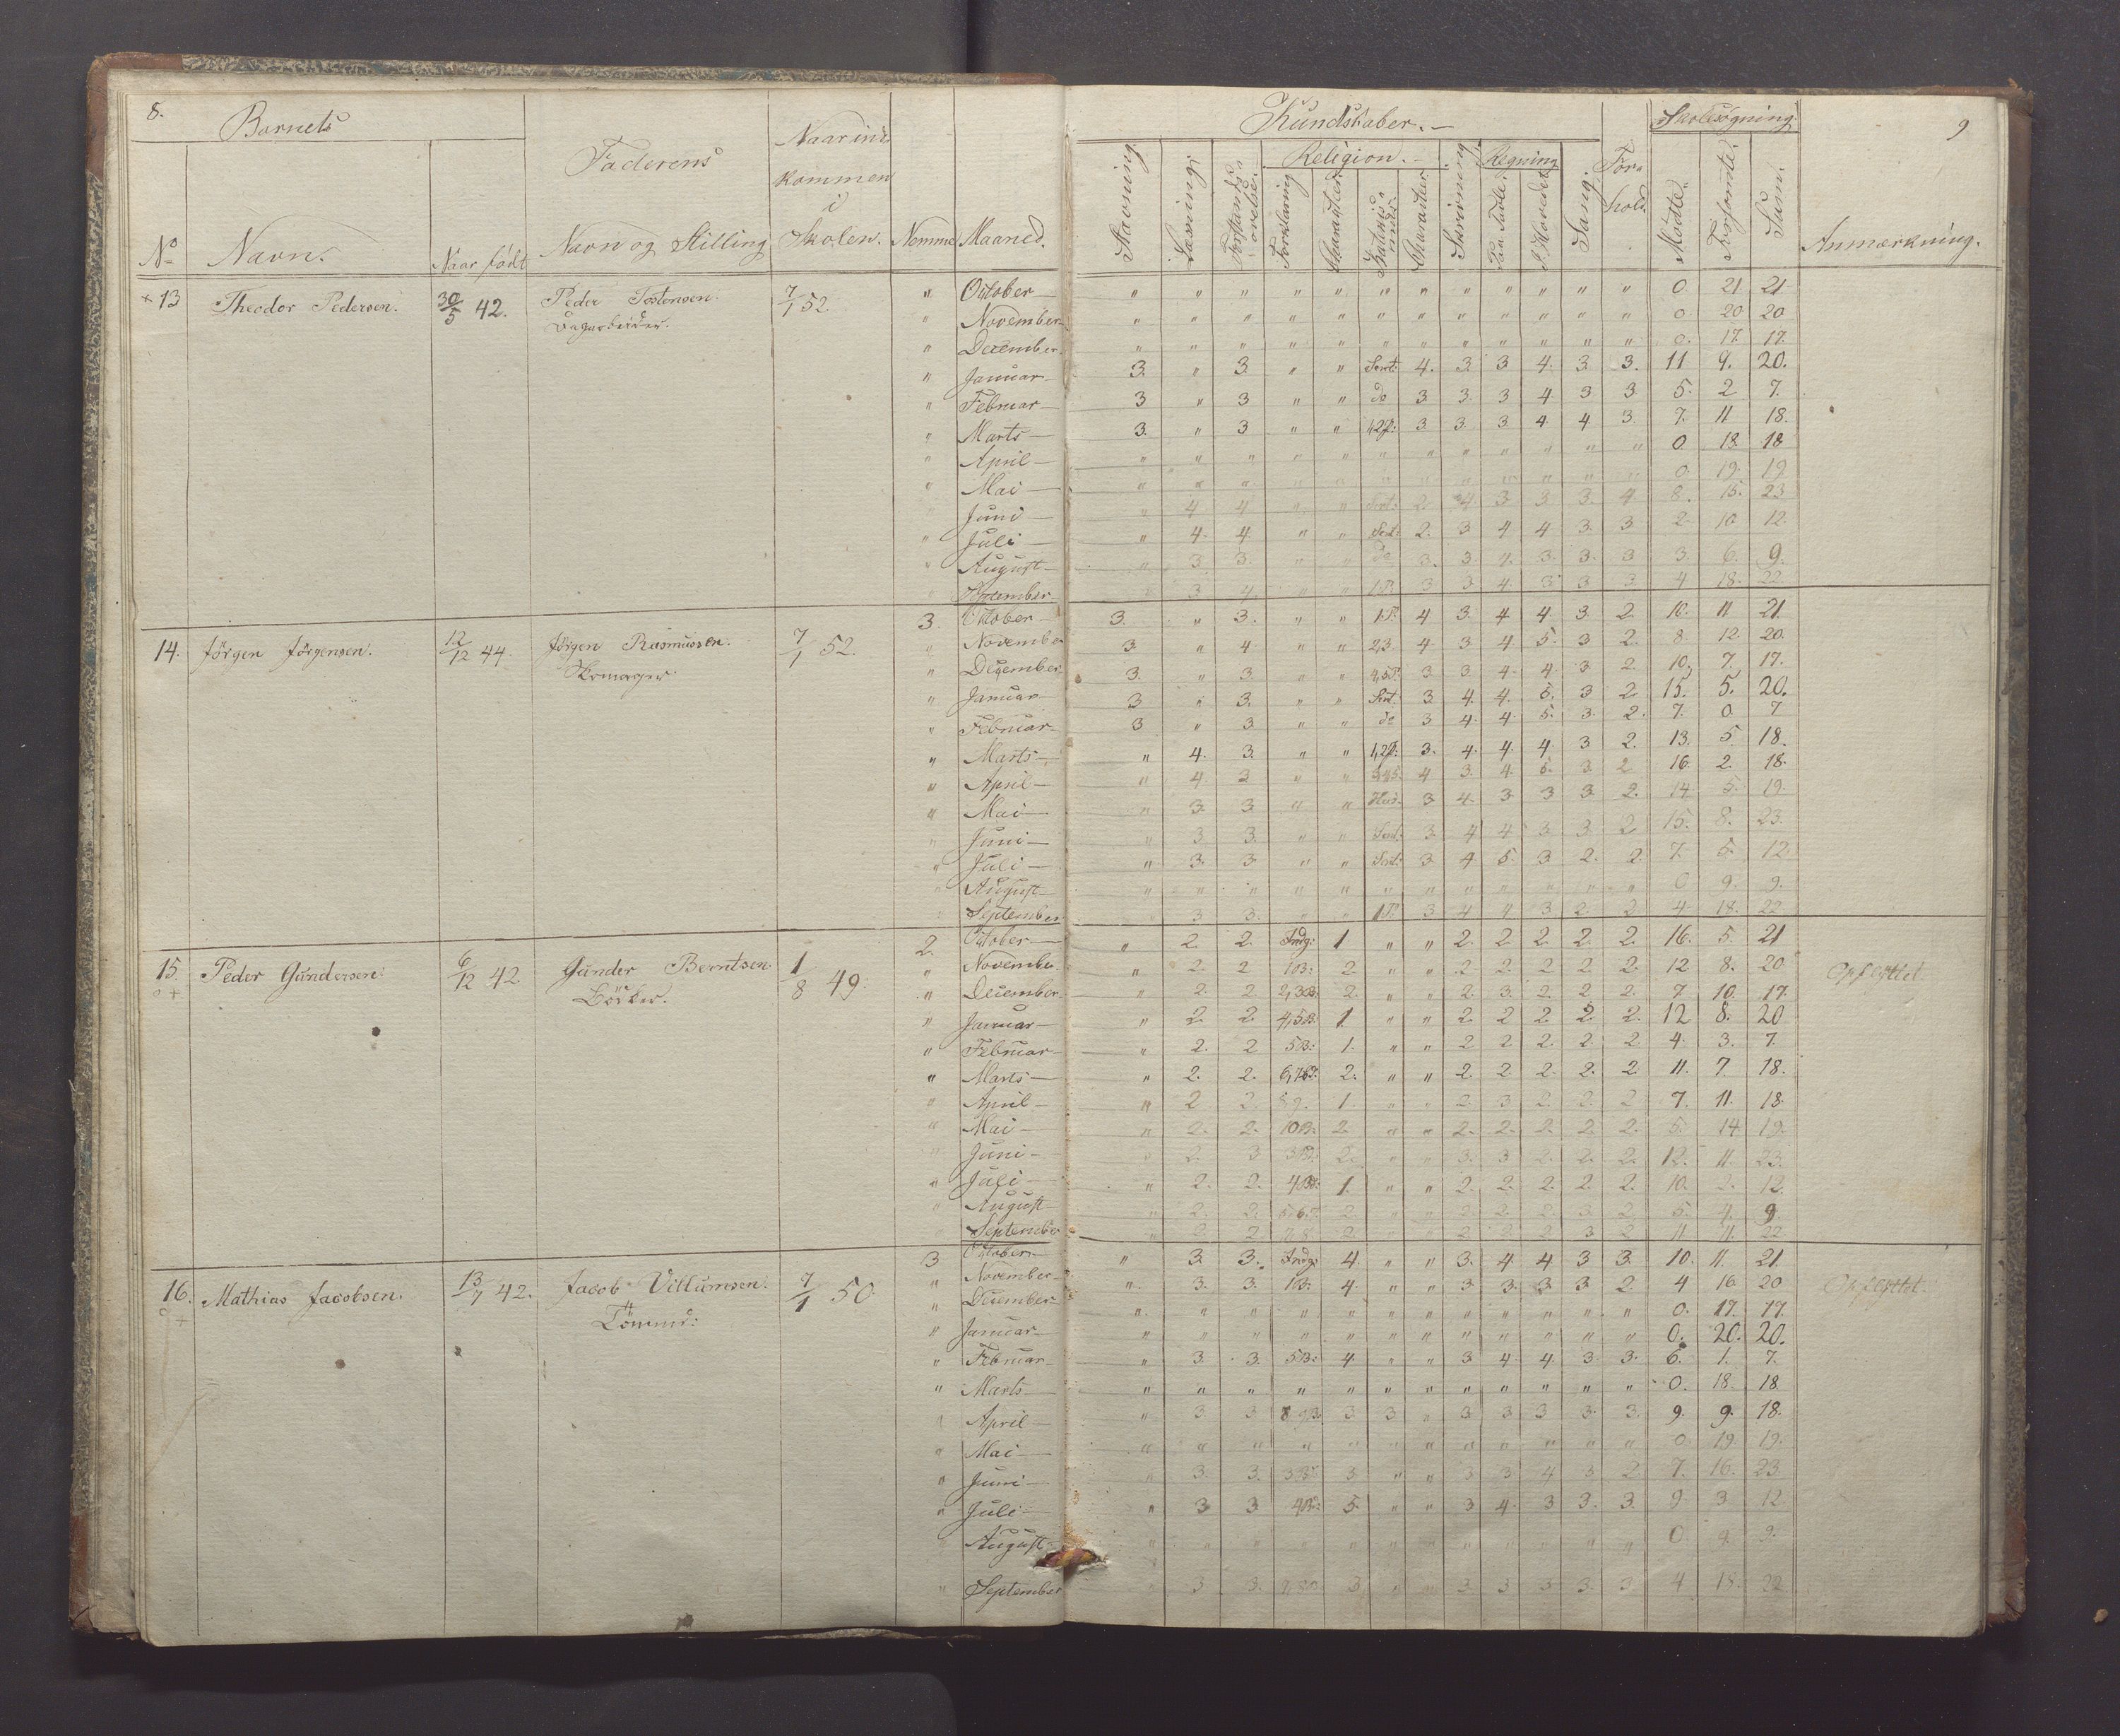 8.
Barnets
Faderens
Naar ind-
kommen
i
Skolen.
No
Navn.
Naar født
Navn og Stilling
Nemme
Maaned.
Kundskaber.
Skolesøgning.
9
Religion.
Regning
For-
hold.
Stavning.
Læsning.
Forstands-
øvelse.
Forklaring
Charakter
Charakter
Skrivning
Paa Tavle.
I Hovedet
Sang.
Mødte.
Forsømte.
Sum.
Anmærkning.
+ 13 Theodor Pedersen. 30/5 42. Peder Tostensen. 7/1 52. " October " " " " " " " " " " " " 0 21 21
Dagarbeider. " November " " " " " " " " " " " " 0 20 20
" December " " " " " " " " " " " " 0. 17. 17.
" Januar 3. " 3. " " 4. 3. 3 4. 3. 3. 11 9. 20.
" Februar 3 " 3 " " do 3 3. 3 4 3 3 5. 2 7.
" Marts 3. " 3 " " 1,2P: 3 3 3 4 4. 3. 7. 11 18.
" April " " " " " " " " " " " " 0 18 18
" Mai " " " " " " " " " " " " 0. 19. 19
" Juni " 4 4 " " 2. 4 3 3 3. 4 8. 15. 23
" Juli " 4. 4. " " 2. 3 4 4 3. 3 2 10 12.
" August " 3. 3. " " do 3. 3 4. 3. 3. 3 3. 6. 9.
" September " 3 4 " " 1.P. 3 3 4 3 3 3. 4 18. 22
14. Jörgen Jörgensen. 12/12 44. Jörgen Rasmussen. 7/1 52. 3. October 3. " 3. " " 1.P. 4 3. 4 4. 3. 2. 10. 11 21.
Skomager. " November 3. " 4 " " 2,3. 4. 3 4. 5. 3 2. 8. 12. 20.
" December 3. " 3. " " 4,5P. 3 3. 4. 4. 3 2. 10. 7. 17.
" Januar 3 " 3. " " 3 4. 4. 5. 3 2 15. 5. 20.
" Februar 3 " 3 " " do 3 4. 4. 5. 3. 2. 7. 0. 7
" Marts " 4. 3. " " 1,2P: 3. 4. 4. 4. 3 2. 13. 5 18.
" April " 4. 3 " " 4 3. 4. 5. 3 2 16. 2. 18.
" Mai " 3. 3. " " 3 4. 3 3 3. 2. 14 5. 19.
" Juni " 3 3. " " 3. 4 4 3 3. 2 15. 8. 23.
" Juli " 3. 3 " " 3 4 5. 3 2. 2. 7. 5. 12.
" August " " " " " " " " " " " " 0 9. 9.
" September " 3 3. " " 1P. 3 4 4 3 2. 2 4. 18. 22
15. Peder Gundersen. 6/12 42 Gunder Berntsen. 1/8 49. 2. October " 2. 2. Indg: 1 " " 2. 2. 2. 2. 2. 16. 5. 21
o + Bödker. " November " 2. 2 1B: 2 " " 2. 2. 2 2 2. 12 8. 20 Opflyttet.
" December " 2. 2. 2,3B: 2. " " 2. 3. 2. 2 2. 7 10. 17.
" Januar " 2. 2. 4,5B: 1 " " 2. 2 2 2 2. 12 8. 20
" Februar " 2. 2 5B: 1. " " 2 2 2. 2. 2 4. 3. 7.
" Marts " 2. 2. 2. " " 2. 2 2. 2. 2 11. 7. 18.
" April " 2 2. 1. " " 2. 3 2. 2. 2 7. 11. 18.
" Mai " 2. 2. 10B: 2 " " 2. 2. 2. 2. 2. 5. 14 19.
" Juni " 2. 3 2. " " 3. 3 2. 2. 2. 12. 11 23.
" Juli " 2. 2. 4B: 1. " " 2. 2. 2. 2. 2. 10. 2. 12.
" August " 2. 2. 2 " " 2. 2. 2. 3 2 5. 4. 9
" September " 2. 2 2 " " 2 2 2 3 2 22
16. Mathias Jacobsen. 13/7 42. Jacob Villumsen. 7/1 50. 3 October " 3. 3. Indg: 4. " " 3. 4 4 3 3. 10. 11. 21.
o + Tömmr: " November " 3. 3. 1B: 4. " " 3 3. 3 3 2. 4 16 20 Opflyttet.
" December " " " " " " " " " " " " 0. 17. 17.
" Januar " " " " " " " " " " " " 0. 20. 20.
" Februar " 3. 3. 5B: 4. " " 3 4. 4. 3 3. 6. 1. 7.
" Marts " " " " " " " " " " " " 0. 18. 18
" April " 3 3 3 3 " 3 3 3 3. 3. 9. 9. 18.
" Mai " " " " " " " " " " " " 0 19 19.
" Juni " 3. 3. 3 " " 3 3 4 3 2 7. 16. 23
" Juli " 3 3 4B: 5. " " 3 4. 3 3. 3. 9 3 12
" August " " " " " " " " " " " " 0 9. 9.
" September " 3 3. 3 " " 3. 3 3 3. 3. 4 18. 22